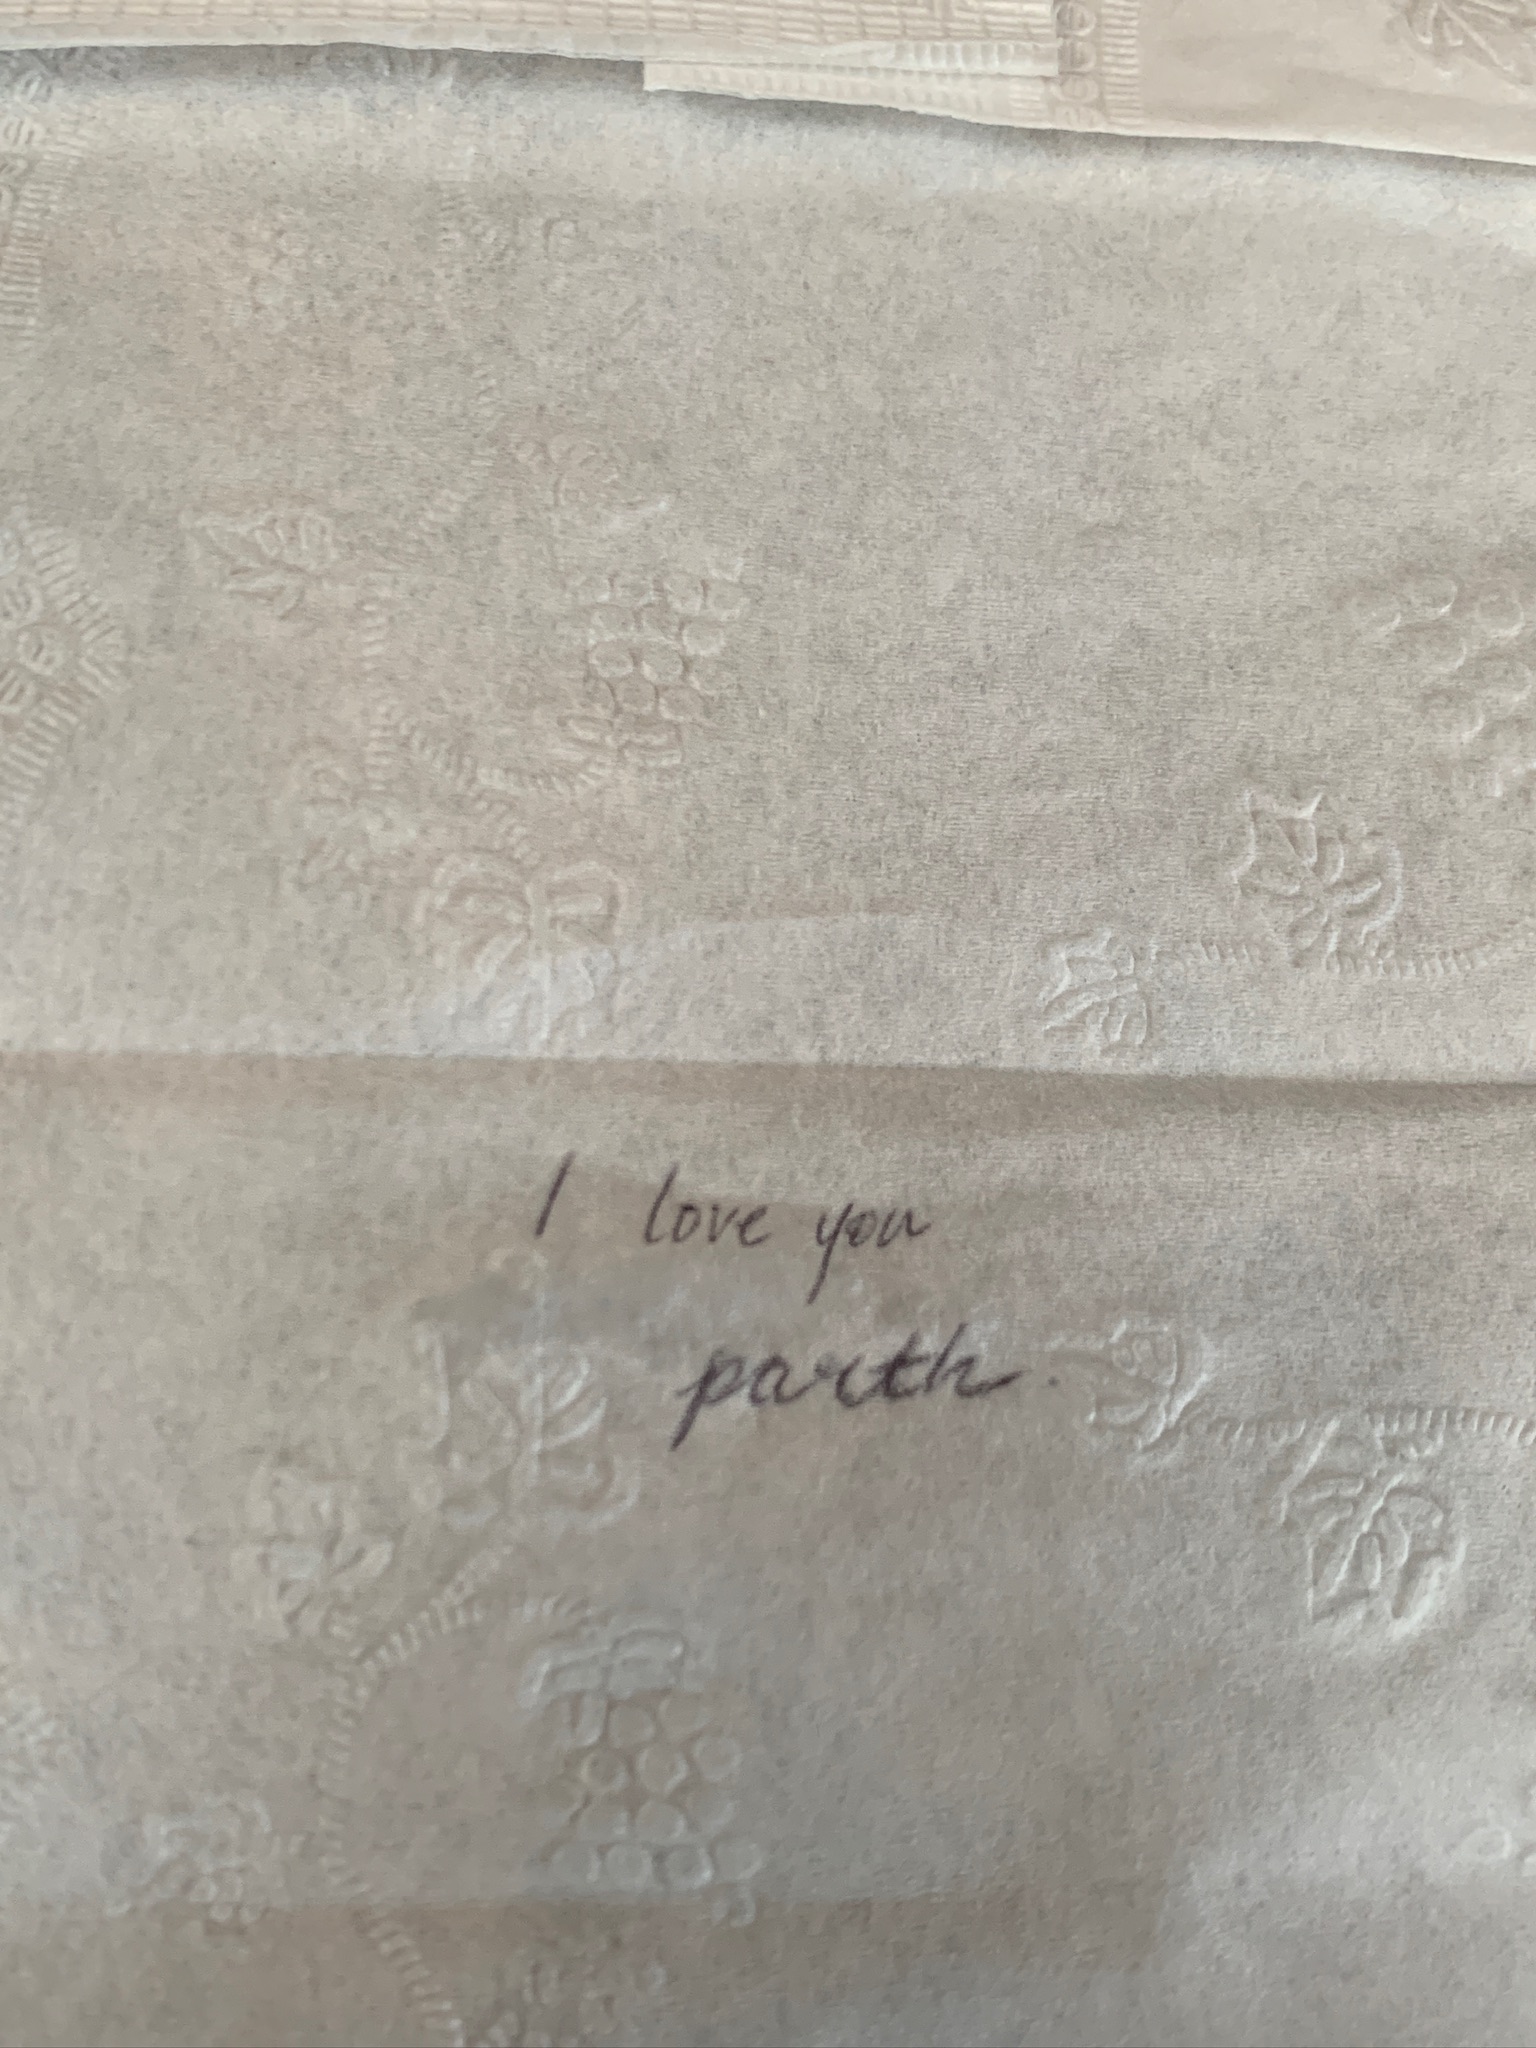 I love you
parth.